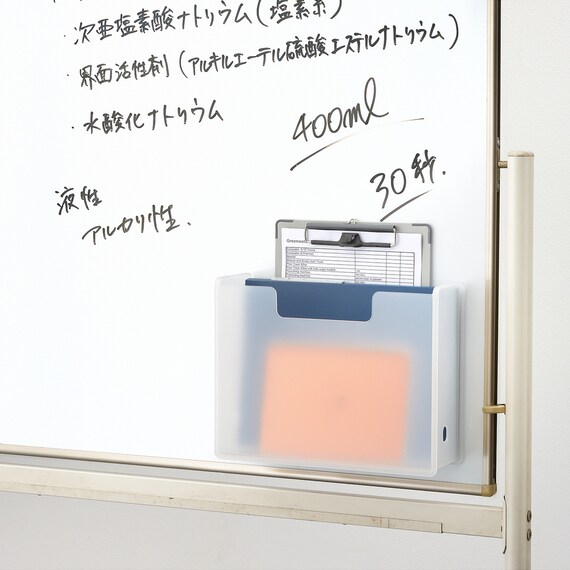 ・次亜塩素酸ナトリウム(塩素系)
・界面活性剤(アルキルエーテル硫酸エステルナトリウム)
・水酸化ナトリウム
400ml
30秒.
液性
アルカリ性.